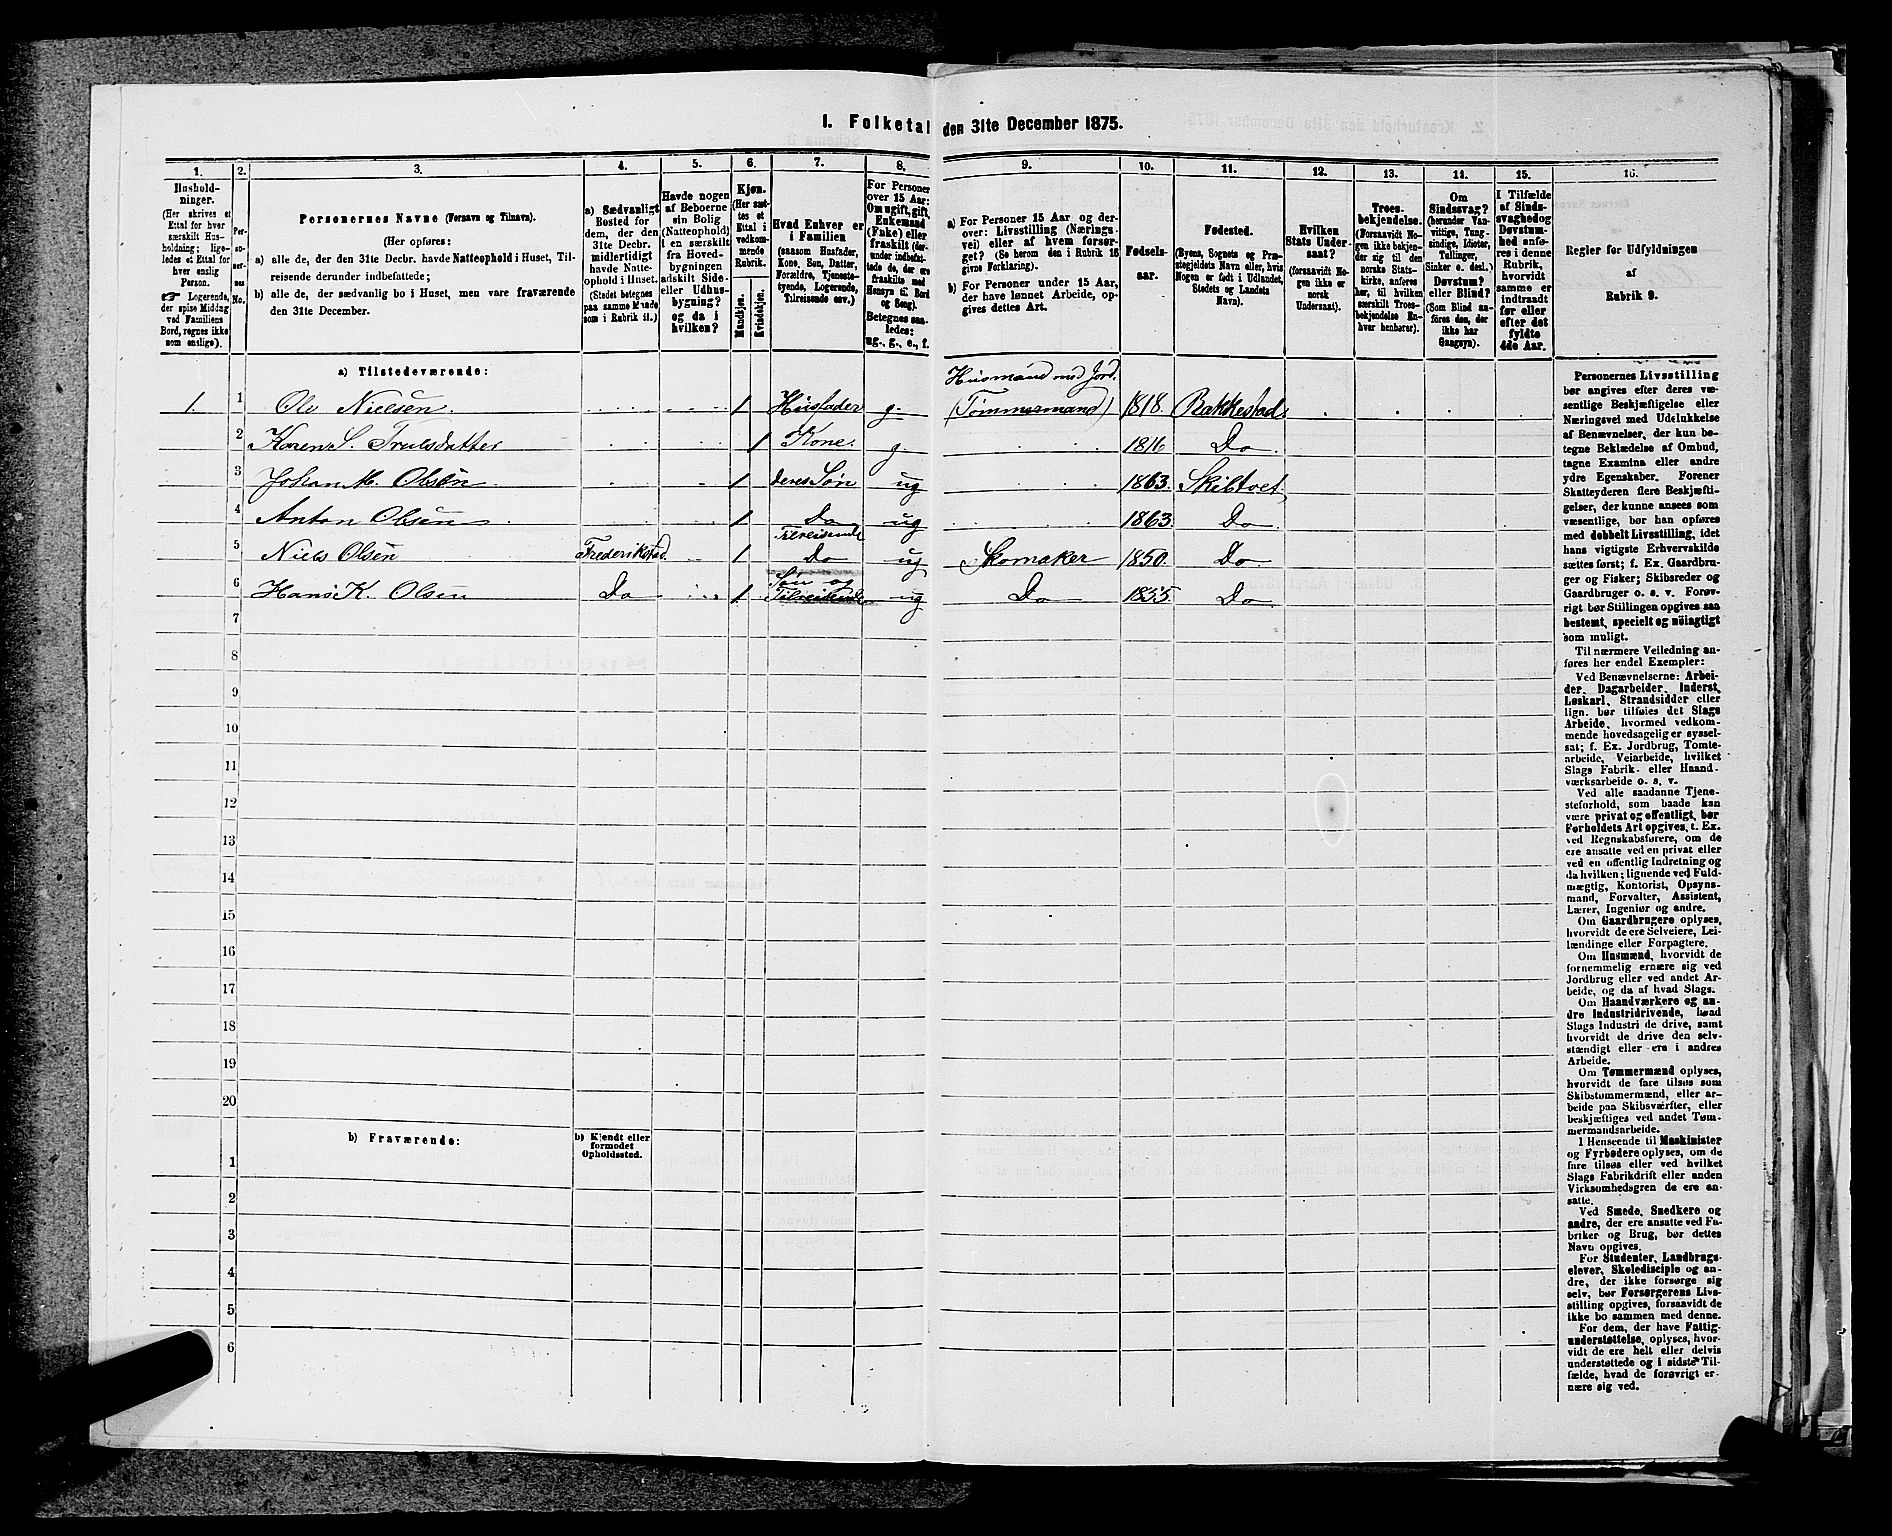 I. Folketal den 31te December 1875.
1. 2. 3. 4. 5. 6. 7. 8. 9. 10. 11. 12. 13. 14. 15. 16.
Hushold-
ninger.
(Her skrives et
Ettal for hver
særskilt Hus-
holdning; lige-
ledes et Ettal for
hver enslig
Person.
☞ Logerende,
der spise Middag
ved Familiens
Bord, regnes ikke
som enslige).
Per-
so-
ner-
nes
No.
Personernes Navne (Fornavn og Tilnavn).
(Her opføres:
a) alle de, der den 31te Decbr. havde Natteophold i Huset, Til-
reisende derunder indbefattede;
b) alle de, der sædvanlig bo i Huset, men vare fraværende
den 31te December.
a) Sædvanligt
Bosted for
dem, der den
31te Decbr.
midlertidigt
havde Natte-
ophold i Huset.
(Stedet betegnes
paa samme Maade
som i Rubrik 11.)
Havde nogen
af Beboerne
sin Bolig
(Natteophold)
i en særskilt
fra Hoved-
bygningen
adskilt Side-
eller Udhus-
bygning?
og da i
hvilken?
Kjøn.
(Her sæt-
tes et
Ettal i
vedkom-
mende
Rubrik.
Mandkjøn.
Kvindekjøn.
Hvad Enhver er
i Familien
(saasom Husfader,
Kone, Søn, Datter,
Forældre, Tjeneste-
tyende, Logerende,
Tilreisende osv.)
For Personer
over 15 Aar:
Om ugift, gift,
Enkemand
(Enke) eller
fraskilt (der-
under indbefat-
tede de, der ere
fraskilte med
Hensyn til Bord
og Seng).
Betegnes saa-
ledes:
ug., g., e., f.
a) For Personer 15 Aar og der-
over: Livsstilling (Nærings-
vei) eller af hvem forsør-
get? (Se herom den i Rubrik 16
givne Forklaring).
b) For Personer under 15 Aar,
der have lønnet Arbeide, op-
gives dettes Art.
Fødsels-
aar.
Fødested.
(Byens, Sognets og Præ-
stegjeldets Navn eller, hvis
Nogen er født i Udlandet,
Stedets og Landets
Navn).
Hvilken
Stats Under-
saat?
(forsaavidt No-
gen ikke er
norsk
Undersaat).
Troes-
bekjendelse.
(Forsaavidt No-
gen ikke bekjen-
der sig til den
norske Stats-
kirke, anføres
her, til hvilken
særskilt Troes-
bekjendelse En-
hver henhører).
Om
Sindssvag?
(herunder Van-
vittige, Tung-
sindige, Idioter,
Tullinger,
Sinker o. desl.)
Døvstum?
eller Blind?
(Som Blind an-
føres den, der
ikke har
Gangsyn).
I Tilfælde
af Sinds-
svaghed og
Døvstum-
hed anfø-
res i denne
Rubrik,
hvorvidt
samme er
indtraadt
før eller
efter det
fyldte
4de Aar.
Regler for Udfyldningen
af
Rubrik 9.
a) Tilstedeværende:
Husmand med Jord.
1. 1 Ole Nielsen. 1 Husfader g. (Tømmermand) 1818. Bakkestad
2 Karen S. Trulsdatter 1 Kone. g. 1816 Do.
3 Johan M. Olsen 1 deres Søn ug 1863. Skibtvet
4 Anton Olsen 1 Do ug 1863. Do
Tilreisende
5 Niels Olsen Frederikstad. 1 Do ug Skomaker 1850. Do
Søn og
6 Hans K. Olsen Do 1 Tilreisende ug Do 1855. Do.
7
8
9
10
11
12
13
14
15
16
17
18
19
20
b) Fraværende:
b) Kjendt eller
formodet
Opholdssted.
1
2
3
4
5
6
Personernes Livsstilling
bør angives efter deres væ-
sentlige Beskjæftigelse eller
Næringsvei med Udelukkelse
af Benævnelser, der kun be-
tegne Beklædelse af Ombud,
tagne Examina eller andre
ydre Egenskaber. Forener
Skatteyderen flere Beskjæfti-
gelser, der kunne ansees som
væsentlige, bør han opføres
med dobbelt Livsstilling, idet
hans vigtigste Erhvervskilde
sættes først; f. Ex. Gaardbru-
ger og Fisker; Skibsreder og
Gaardbruger o. s. v. Forøv-
rigt bør Stillingen opgives saa
bestemt, specielt og nøiagtigt
som muligt.
Til nærmere Veiledning an-
føres her endel Exempler:
Ved Benævnelserne: Arbei-
der, Dagarbeider, Inderst,
Løskarl, Strandsidder eller
lign. bør tilføies det Slags
Arbeide, hvormed vedkom-
mende hovedsagelig er syssel-
sat; f. Ex. Jordbrug, Tomte-
arbeide, Veiarbeide, hvilket
Slags Fabrik- eller Haand-
værksarbeide o. s. v.
Ved alle saadanne Tjene-
steforhold, som baade kan
være privat og offentligt, bør
Forholdets Art opgives, t. Ex.
ved Regnskabsførere, om de
ere ansatte ved en privat eller
ved en offentlig Indretning og
da hvilken; lignende ved Fuld-
mægtig, Kontorist, Opsyns-
mand, Forvalter, Assistent,
Lærer, Ingeniør og andre.
Om Gaardbrugere oplyses,
hvorvidt de ere Selveiere, Lei-
lændinge eller Forpagtere.
Om Husmænd, hvorvidt de
fornemmelig ernære sig ved
Jordbrug eller ved andet Ar-
beide, og da af hvad Slags.
Om Haandværkere og an-
dre Industridrivende, hvad
Slags Industri de drive, samt
hvorvidt de drive den selv-
stændigt eller ere i andres
Arbeide.
Om Tømmermænd oplyses,
hvorvidt de fare tilsøs som
Skibstømmermænd, eller ar-
beide paa Skibsværfter, eller
beskjæftiges ved andet Tøm-
mermandsarbeide.
I Henseende til Maskinister
og Fyrbødere oplyses, om de
fare tilsøs eller ved hvilket
Slags Fabrikdrift eller anden
Virksomhedsgren de ere an-
satte.
Ved Smede, Snedkere og
andre, der ere ansatte ved Fa-
briker og Brug, bør dettes
Navn opgives.
For Studenter, Landbrugs-
elever, Skoledisciple og an-
dre, der ikke forsørge sig
selv, bør Forsørgerens Livs-
stilling opgives, forsaavidt de
ikke bo sammen med denne.
For dem, der have Fattig-
understøttelse, oplyses, hvor-
vidt de ere helt eller delvis
understøttede og i sidste Til-
fælde, hvad de forøvrigt er-
nære sig ved.